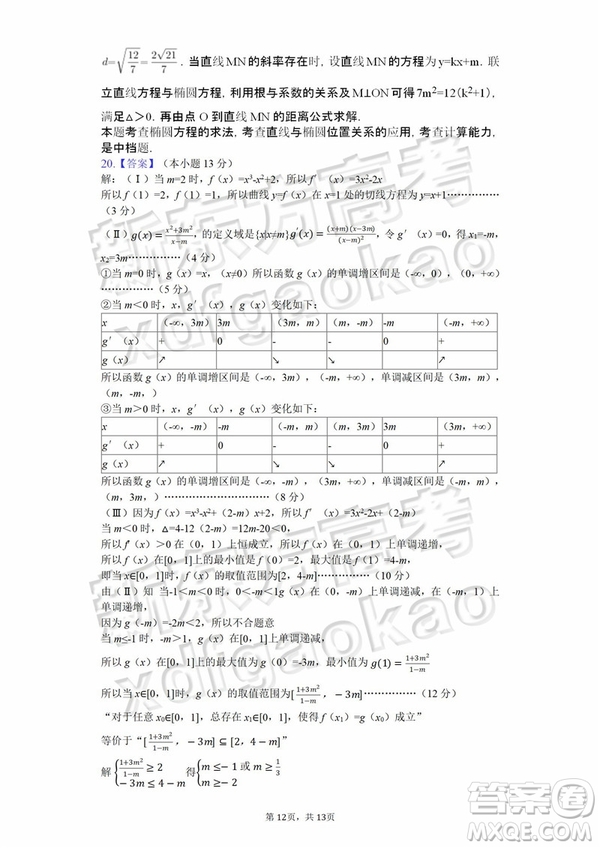 d=√(12/7)=2√21/7．当直线MN的斜率存在时，设直线MN的方程为y=kx+m．联
立直线方程与椭圆方程，利用根与系数的关系及M⊥ON可得7m²=12(k²+1)，
满足△＞0．再由点O到直线MN的距离公式求解．
本题考查椭圆方程的求法，考查直线与椭圆位置关系的应用，考查计算能力，
是中档题．
20.【答案】（本小题13分）
解：（Ⅰ）当m=2时，f（x）=x³-x²+2，所以f′（x）=3x²-2x
所以f（1）=2，f（1）=1，所以曲线y=f（x）在x=1处的切线方程为y=x+1……………
（3分）
（Ⅱ）g(x)=(x²+3m²)/(x-m)，的定义域是{x|x≠m}g′(x)=(x+m)(x-3m)/(x-m)²，令g′（x）=0，得x₁=-m，
x₂=3m……………（4分）
①当m=0时，g（x）=x，（x≠0）所以函数g（x）的单调增区间是（-∞，0），（0，+∞）
……………（5分）
②当m＜0时，x，g′（x），g（x）变化如下：
x （-∞，3m） 3m （3m，m） （m，-m） -m （-m，+∞）
g′（x） + 0 - - 0 +
g（x） ↗ ↘ ↘ ↗
所以函数g（x）的单调增区间是（-∞，3m），（-m，+∞），单调减区间是（3m，m），
（m，-m，）
③当m＞0时，x，g′（x），g（x）变化如下：
x （-∞，-m） -m （-m，m） （m，3m） 3m （3m，+∞）
g′（x） + 0 - - 0 +
g（x） ↗ ↘ ↘ ↗
所以函数g（x）的单调增区间是（-∞，-m），（3m，+∞），单调减区间是（-m，m），
（m，3m，）……………………………（8分）
（Ⅲ）因为f（x）=x³-x²+（2-m）x+2，所以f′（x）=3x²-2x+（2-m）
当m＜0时，△=4-12（2-m）=12m-20＜0，
所以f'（x）＞0在（0，1）上恒成立，所以f（x）在（0，1）上单调递增，
所以f（x）在[0，1]上的最小值是f（0）=2，最大值是f（1）=4-m，
即当x∈[0，1]时，f（x）的取值范围为[2，4-m]……………（10分）
由（Ⅱ）知 当-1＜m＜0时，0＜-m＜1g（x）在（0，-m）上单调递减，在（-m，1）上
单调递增，
因为g（-m）=-2m＜2，所以不合题意
当m≤-1时，-m＞1，g（x）在（0，1）上单调递减，
所以g（x）在[0，1]上的最大值为g（0）=-3m，最小值为g(1)=(1+3m²)/(1-m)
所以当x∈[0，1]时，g（x）的取值范围为[(1+3m²)/(1-m)，-3m]……………（12分）
“对于任意x₀∈[0，1]，总存在x₁∈[0，1]，使得f（x₁）=g（x₀）成立”
等价于“[(1+3m²)/(1-m)，-3m]⊆[2，4-m]”
解{(1+3m²)/(1-m)≥2 -3m≤4-m 得{m≤-1或m≥1/3 m≥-2
第12页，共13页
新东方高考
xdfgaokao
新东方高考
xdfgaokao
答案圈
MXQE.COM